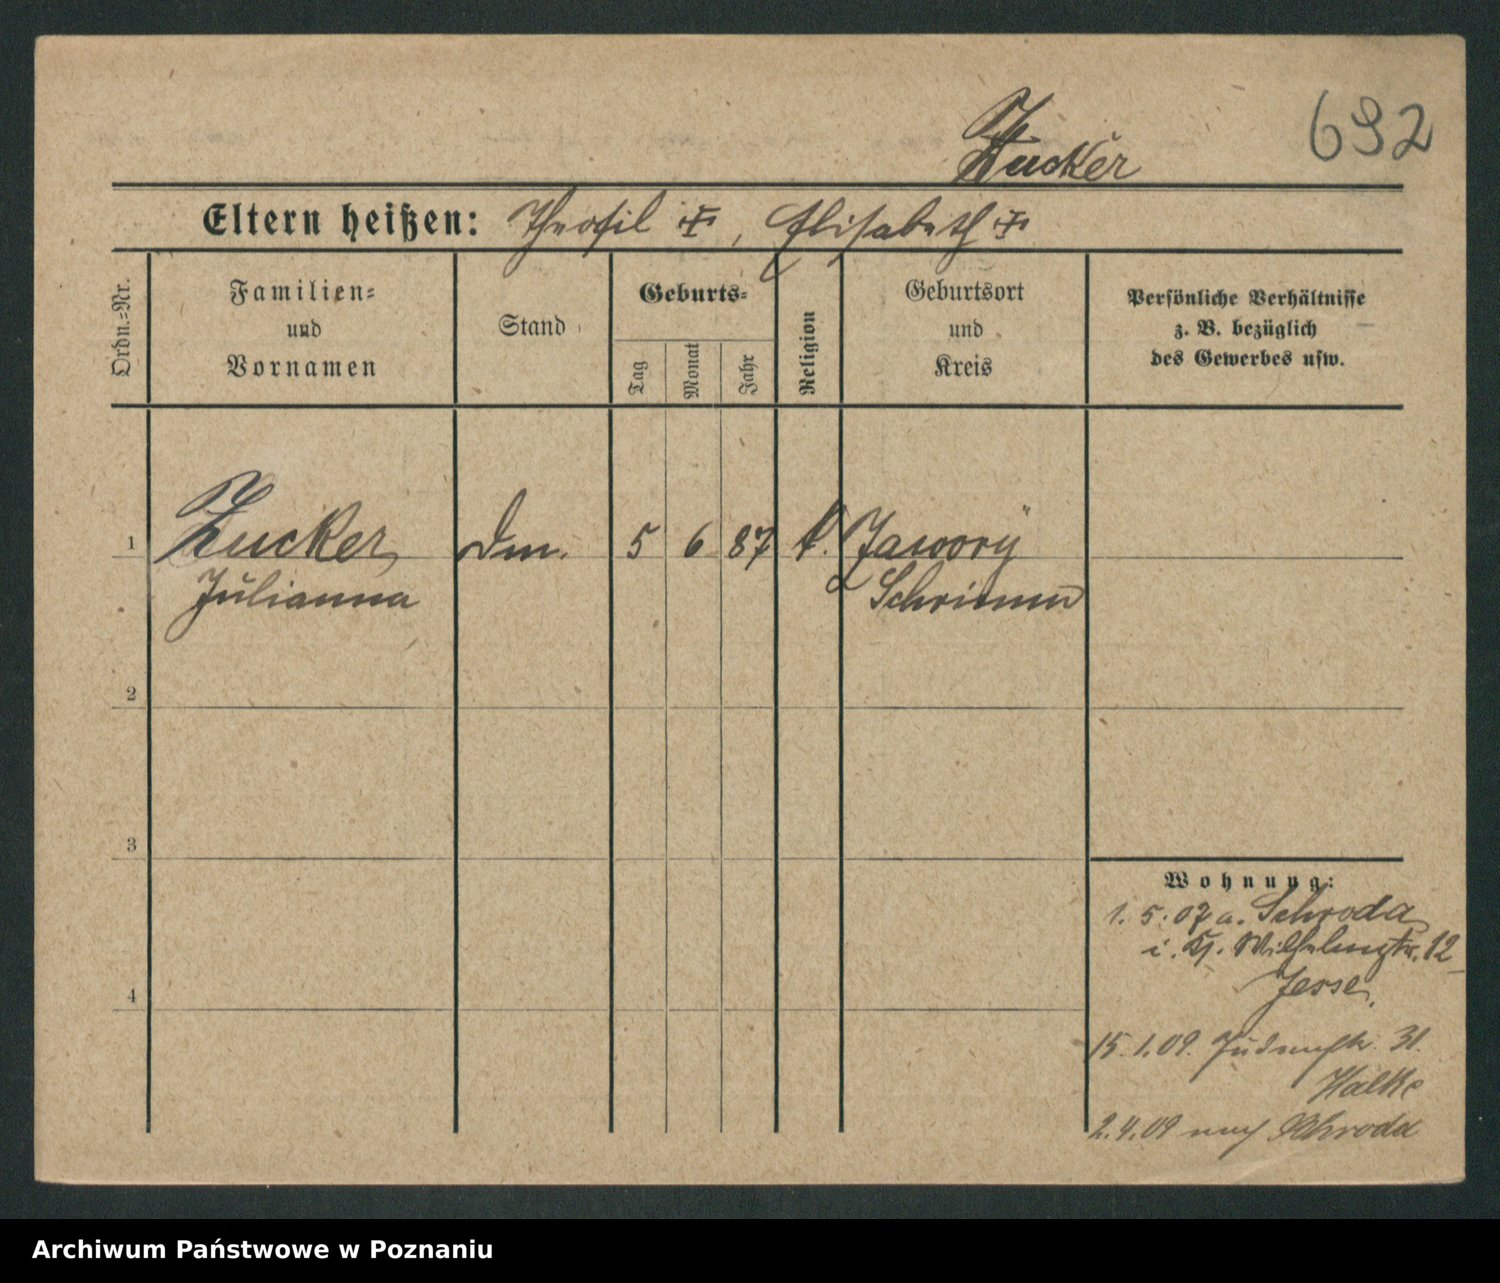 Zucker
692
Eltern heißen: Theofil , Elisabeth
Ordn.-Nr.
Familien- und Vornamen
Stand
Geburts-
Tag
Monat
Jahr
Religion
Geburtsort und Kreis
Persönliche Verhältnisse
z. B. bezüglich
des Gewerbes usw.
1 Zucker, 5 6 87 k. Jawory
Julianna Schrimm
2
3
4
Wohnung:
1. 5. 07 a. Schroda
i. Wilhelmstr. 12
Jesse.
15. 1. 09. Judenstr. 31.
Halke
2. 4. 09 nach Schroda
Archiwum Państwowe w Poznaniu